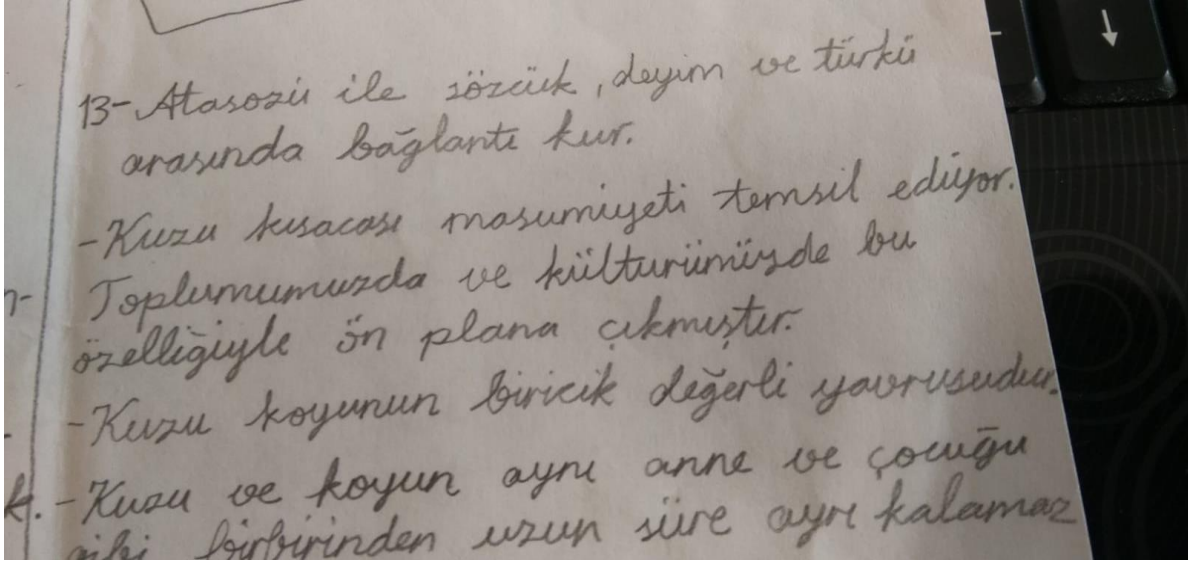 13- Atasozü ile sözcük, deyim ve türkü
arasında bağlantı kur.
-Kuzu kısacası masumiyeti temsil ediyor.
Toplumumuzda ve kültürümüzde bu
özelliğiyle ön plana çıkmıştır.
-Kuzu koyunun biricik değerli yavrusudur.
-Kuzu ve koyun aynı anne ve çocuğu
gibi birbirinden uzun süre ayrı kalamaz